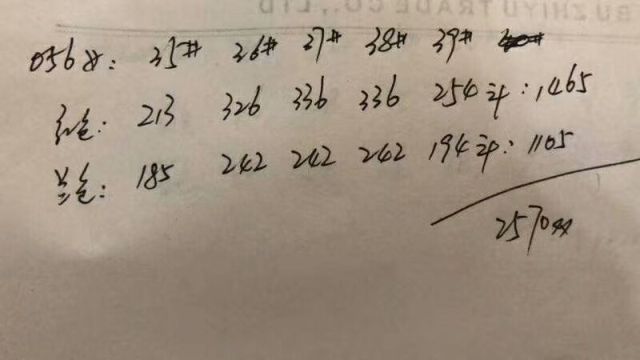 BUZHIYU TRADE CO., LTD
0568#: 35# 36# 37# 38# 39#
红色: 213 326 336 336 254 计: 1465
兰色: 185 242 242 242 194 计: 1105
2570